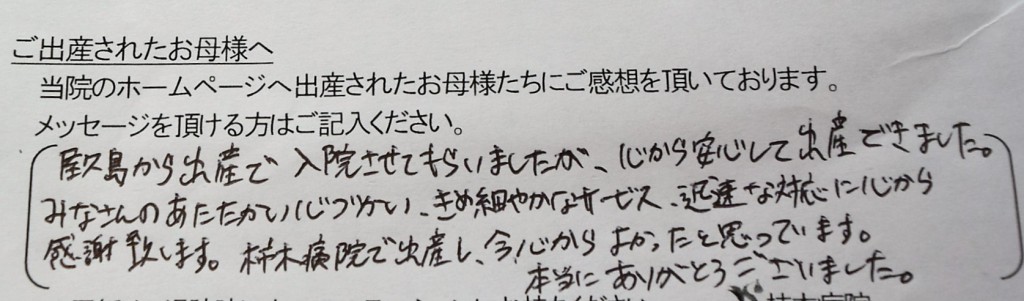 ご出産されたお母様へ
当院のホームページへ出産されたお母様たちにご感想を頂いております。
メッセージを頂ける方はご記入ください。
屋久島から出産で入院させてもらいましたが、心から安心して出産できました。
みなさんのあたたかい心づかい、きめ細やかなサービス、迅速な対応に心から
感謝致します。柿木病院で出産し、今心からよかったと思っています。
本当にありがとうございました。